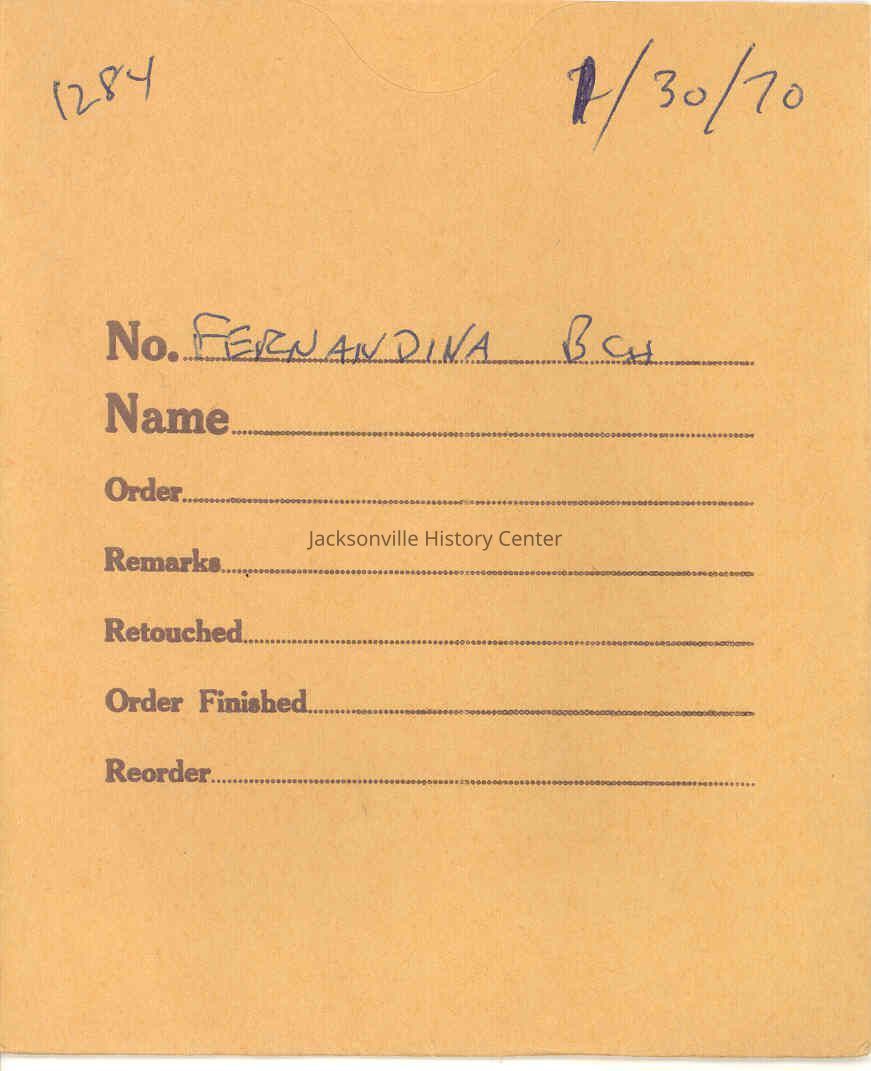 1284
1/30/70
No. FERNANDINA BCH
Name
Order
Jacksonville History Center
Remarks
Retouched
Order Finished
Reorder